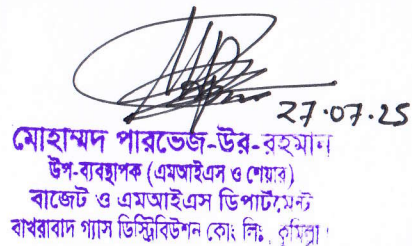 27.07.25
মোহাম্মদ পারভেজ-উর-রহমান
উপ-ব্যবস্থাপক (এমআইএস ও শেয়ার)
বাজেট ও এমআইএস ডিপার্টমেন্ট
বাখরাবাদ গ্যাস ডিস্ট্রিবিউশন কোং লিঃ, কুমিল্লা।